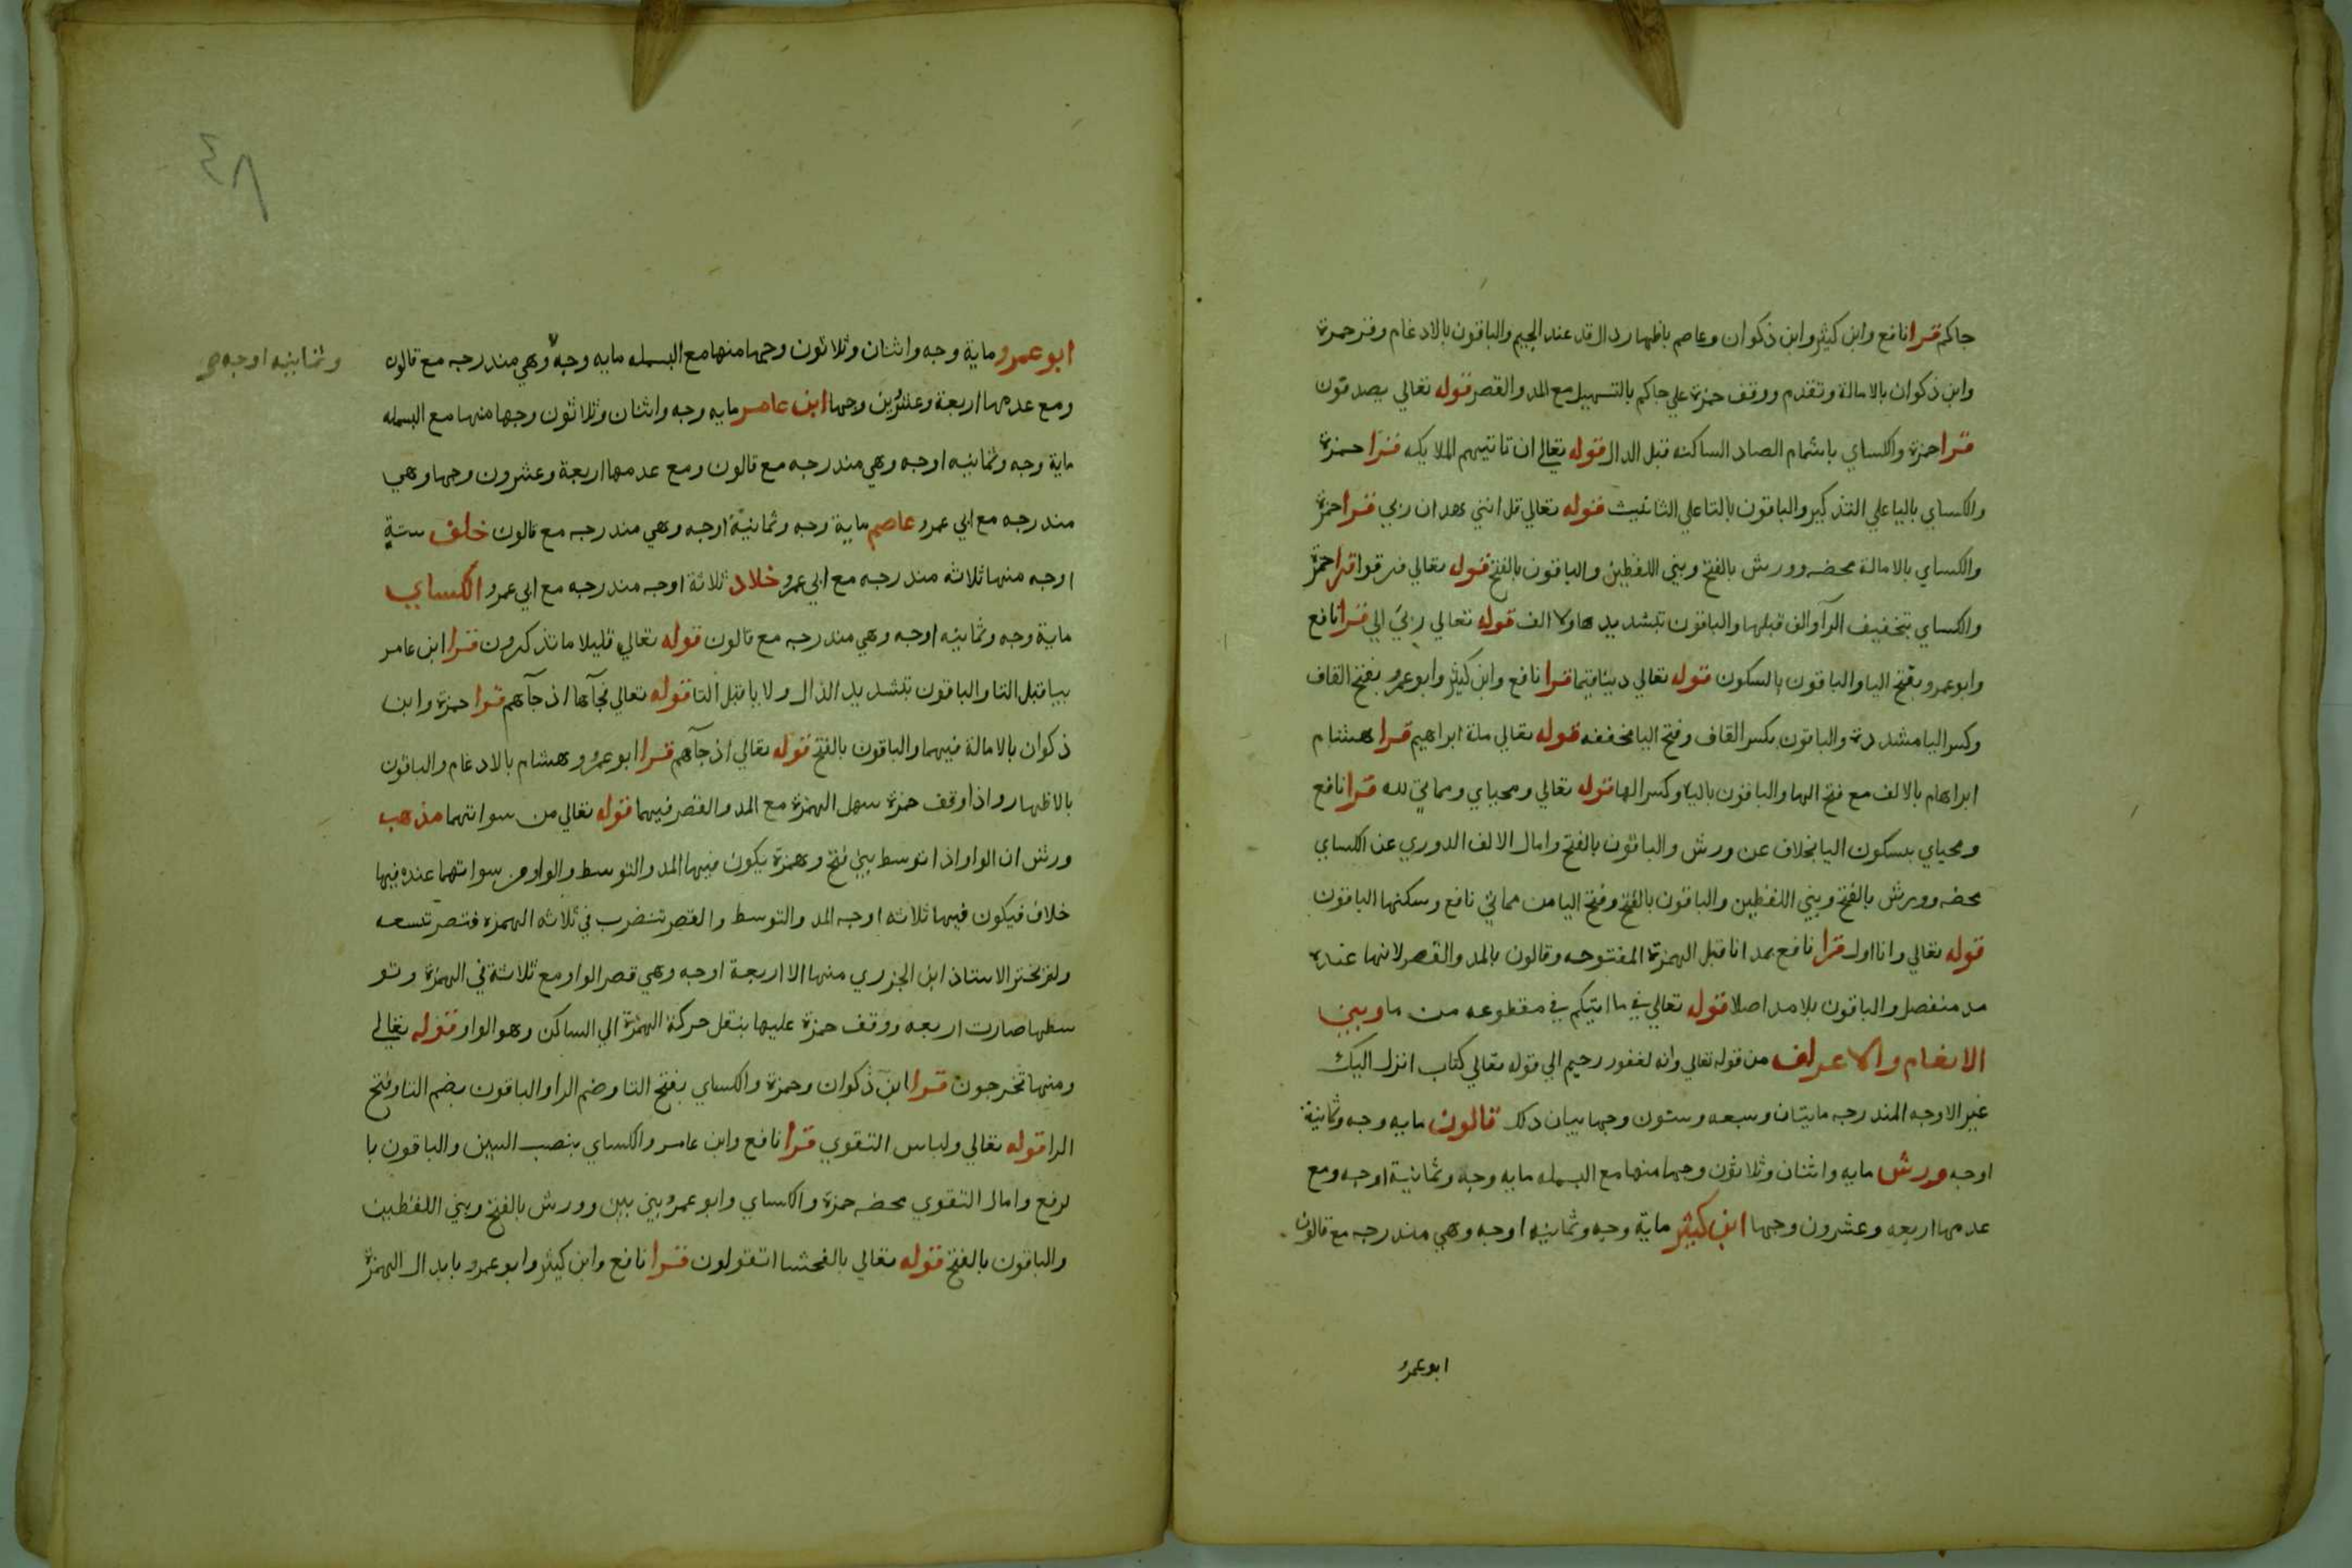 جاكم قرا نافع وابن كثير وابن ذكوان وعاصم باظهار دال قد عند الجيم والباقون بالادغام وقر حمزة
وابن ذكوان بالامالة وتقدم ووقف حمزة علي جاكم بالتسهيل مع المد والقصر قوله تعالي يصدقون
قرا حمزة والكساي باشمام الصاد الساكنه قبل الدال قوله تعالي ان تاتيهم الملايكه قرا حمزة
والكساي باليا علي التذكير والباقون بالتا علي التانيث قوله تعالي قل انني هدان ربي قرا حمزة
والكساي بالامالة محضه وورش بالفتح وبيني اللفظين والباقون بالفتح قوله تعالي فرقوا قرا حمزة
والكساي بتخفيف الرآ والف قبلها والباقون بتشديدها ولا الف قوله تعالي ربي الي قرا نافع
وابو عمرو بفتح اليا والباقون بالسكون قوله تعالي دينا قيما قرا نافع وابن كثير وابو عمرو بفتح القاف
وكسر اليا مشددة والباقون بكسر القاف وفتح اليا مخففه قوله تعالي ملة ابراهيم قرا هشام
ابراهام بالالف مع فتح الها والباقون باليا وكسر الها قوله تعالي ومحياي ومماتي لله قرا نافع
ومحياي بسكون اليا بخلاف عن ورش والباقون بالفتح وامال الالف الدوري عن الكساي
محضه وورش بالفتح وبيني اللفظين والباقون بالفتح وفتح اليا من مماتي نافع وسكنها الباقون
قوله تعالي وانا اول قرا نافع بمد انا قبل الهمزة المفتوحه وقالون بالمد والقصر لانها عنده
مد منفصل والباقون بلا مد اصلا قوله تعالي في ما اتيكم في مقطوعه من ما وبين
الانعام والاعراف من قوله تعالي وانه لغفور رحيم الي قوله تعالي كتاب انزل اليك
غير الاوجه المندرجه مايتان وسبعه وستون وجها بيان ذلك قالون مايه وجه وثمانية
اوجه ورش مايه واثنان وثلاثون وجها منها مع البسمله مايه وجه وثمانية اوجه ومع
عدمها اربعه وعشرون وجها ابن كثير ماية وجه وثمانيه اوجه وهي مندرجه مع قالون
ابو عمرو
٤٨
ابو عمرو ماية وجه واثنان وثلاثون وجها منها مع البسمله مايه وجه وهي مندرجه مع قالون
وثمانيه اوجه
ومع عدمها اربعة وعشرين وجها ابن عامر مايه وجه واثنان وثلاثون وجها منها مع البسمله
ماية وجه وثمانيه اوجه وهي مندرجه مع قالون ومع عدمها اربعة وعشرون وجها وهي
مندرجه مع ابي عمرو عاصم ماية وجه وثمانية اوجه وهي مندرجه مع قالون خلف ستة
اوجه منها ثلاثه مندرجه مع ابي عمرو خلاد ثلاثة اوجه مندرجه مع ابي عمرو الكساي
ماية وجه وثمانيه اوجه وهي مندرجه مع قالون قوله تعالي قليلا ما تذكرون قرا ابن عامر
بيا قبل التا والباقون بتشديد الذال ولا يا قبل التا قوله تعالي فجآها اذ جآهم قرا حمزة وابن
ذكوان بالامالة فيهما والباقون بالفتح قوله تعالي اذ جآهم قرا ابو عمرو وهشام بالادغام والباقون
بالاظهار واذا وقف حمزة سهل الهمزة مع المد والقصر فيهما قوله تعالي من سواتهما مذهب
ورش ان الواو اذا توسط بين فتح وهمزة يكون فيها المد والتوسط والواو من سواتهما عنده فيها
خلاف فيكون فيها ثلاثه اوجه المد والتوسط والقصر تنضرب في ثلاثه الهمزه فتصر تسعه
ولم يختر الاستاذ ابن الجزري منها الا اربعة اوجه وهي قصر الواو مع ثلاثة في الهمزة وتو
سطها صارت اربعه ووقف حمزة عليها بنقل حركة الهمزة الي الساكن وهو الواو قوله تعالي
ومنها تخرجون قرا ابن ذكوان وحمزة والكساي بفتح التا وضم الرا والباقون بضم التا وفتح
الرا قوله تعالي ولباس التقوي قرا نافع وابن عامر والكساي بنصب السين والباقون با
لرفع وامال التقوي محضه حمزة والكساي وابو عمرو بيني بين وورش بالفتح وبيني اللفظين
والباقون بالفتح قوله تعالي بالفحشا اتقولون قرا نافع وابن كثير وابو عمرو بابدال الهمزة